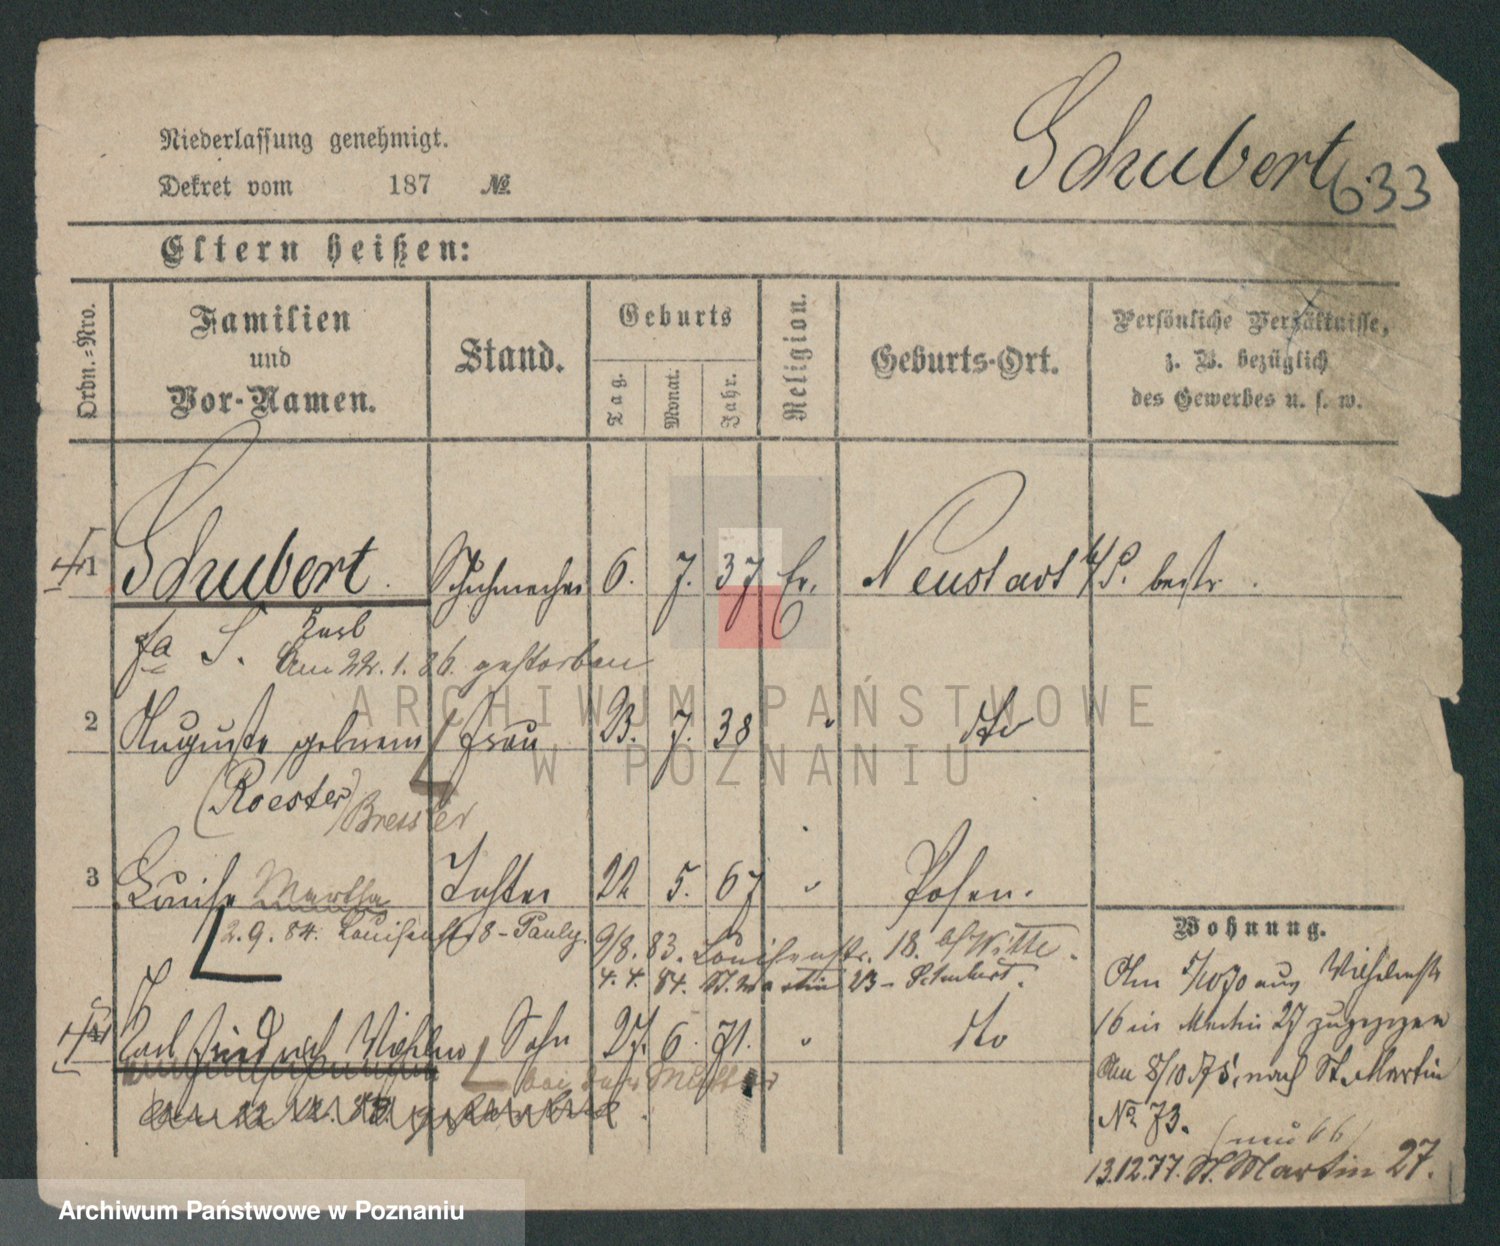 Schubert 633
Niederlassung genehmigt.
Dekret vom 187 No.
Eltern heißen:
Ordn.-Nro.
Familien
und
Vor-Namen.
Stand.
Geburts
Tag.
Monat.
Jahr.
Religion.
Geburts-Ort.
Persönliche Verhältnisse,
z. B. bezüglich
des Gewerbes u. s. w.
1 Schubert. Schuhmacher 6. 7. 37 Ev. Neustadt a/P. bestr.
S. Karl
Am 22.1.86. gestorben
2 Auguste geborene Frau 23. 7. 38 " dto
(Roester) Bressler
3 Louise Martha Tochter 22 5. 67 " Posen.
2.9.84. Louisenstr 8 - Pauly. 9/8.83. Louisenstr. 18. b/ Witte.
4.4.84. St. Martin 23 - Schubert.
4 Carl Friedrich Wilhelm Sohn 27. 6. 71. " dto
bei der Mutter
Wohnung.
Am 5/10 70 aus Wilhelmstr
16 in Martin 27 zugezogen
Am 8/10 75, nach St. Martin
No 73.
(neu 66)
13.12.77. St. Martin 27.
ARCHIWUM PAŃSTWOWE
W POZNANIU
Archiwum Państwowe w Poznaniu